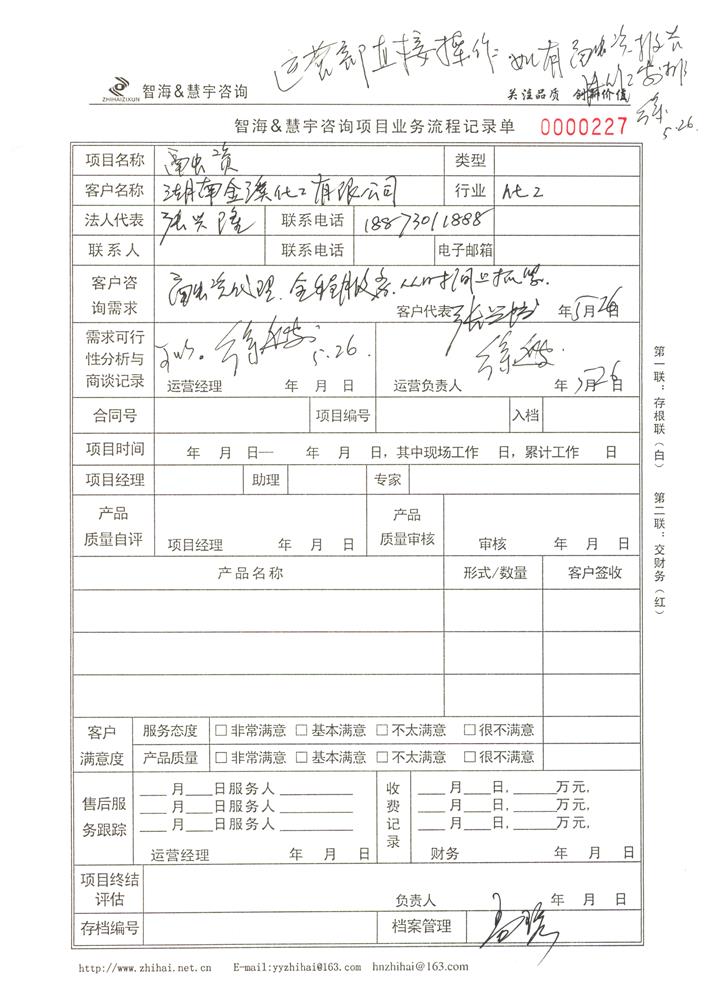 运营部直接操作.如有
智海&慧宇咨询
ZHIHAIZIXUN
关注品质 创新价值
5.26.
智海&慧宇咨询项目业务流程记录单 0000227
项目名称 商虫资 类型
客户名称 湖南金溪化工有限公司 行业 化工
法人代表 张兴隆 联系电话 18873011888
联系人 联系电话 电子邮箱
客户咨
询需求
代理、全程服务、
客户代表 年5月26日
需求可行
性分析与
商谈记录
可以。 5.26.
运营经理 年 月 日 运营负责人 年5月26日
合同号 项目编号 入档
项目时间 年 月 日— 年 月 日,其中现场工作 日,累计工作 日
项目经理 助理 专家
产品
质量自评 项目经理 年 月 日
产品
质量审核 审核 年 月 日
产品名称 形式/数量 客户签收
客户
满意度
服务态度 □非常满意 □基本满意 □不太满意 □很不满意
产品质量 □非常满意 □基本满意 □不太满意 □很不满意
售后服
务跟踪
___月___日服务人________
___月___日服务人________
___月___日服务人________
运营经理 年 月 日
收费记录
___月___日,_____万元,
___月___日,_____万元,
___月___日,_____万元,
财务 年 月 日
项目终结
评估
负责人 年 月 日
存档编号 档案管理
http://www.zhihai.net.cn E-mail:yyzhihai@163.com hnzhihai@163.com
第一联:存根联(白) 第二联:交财务(红)